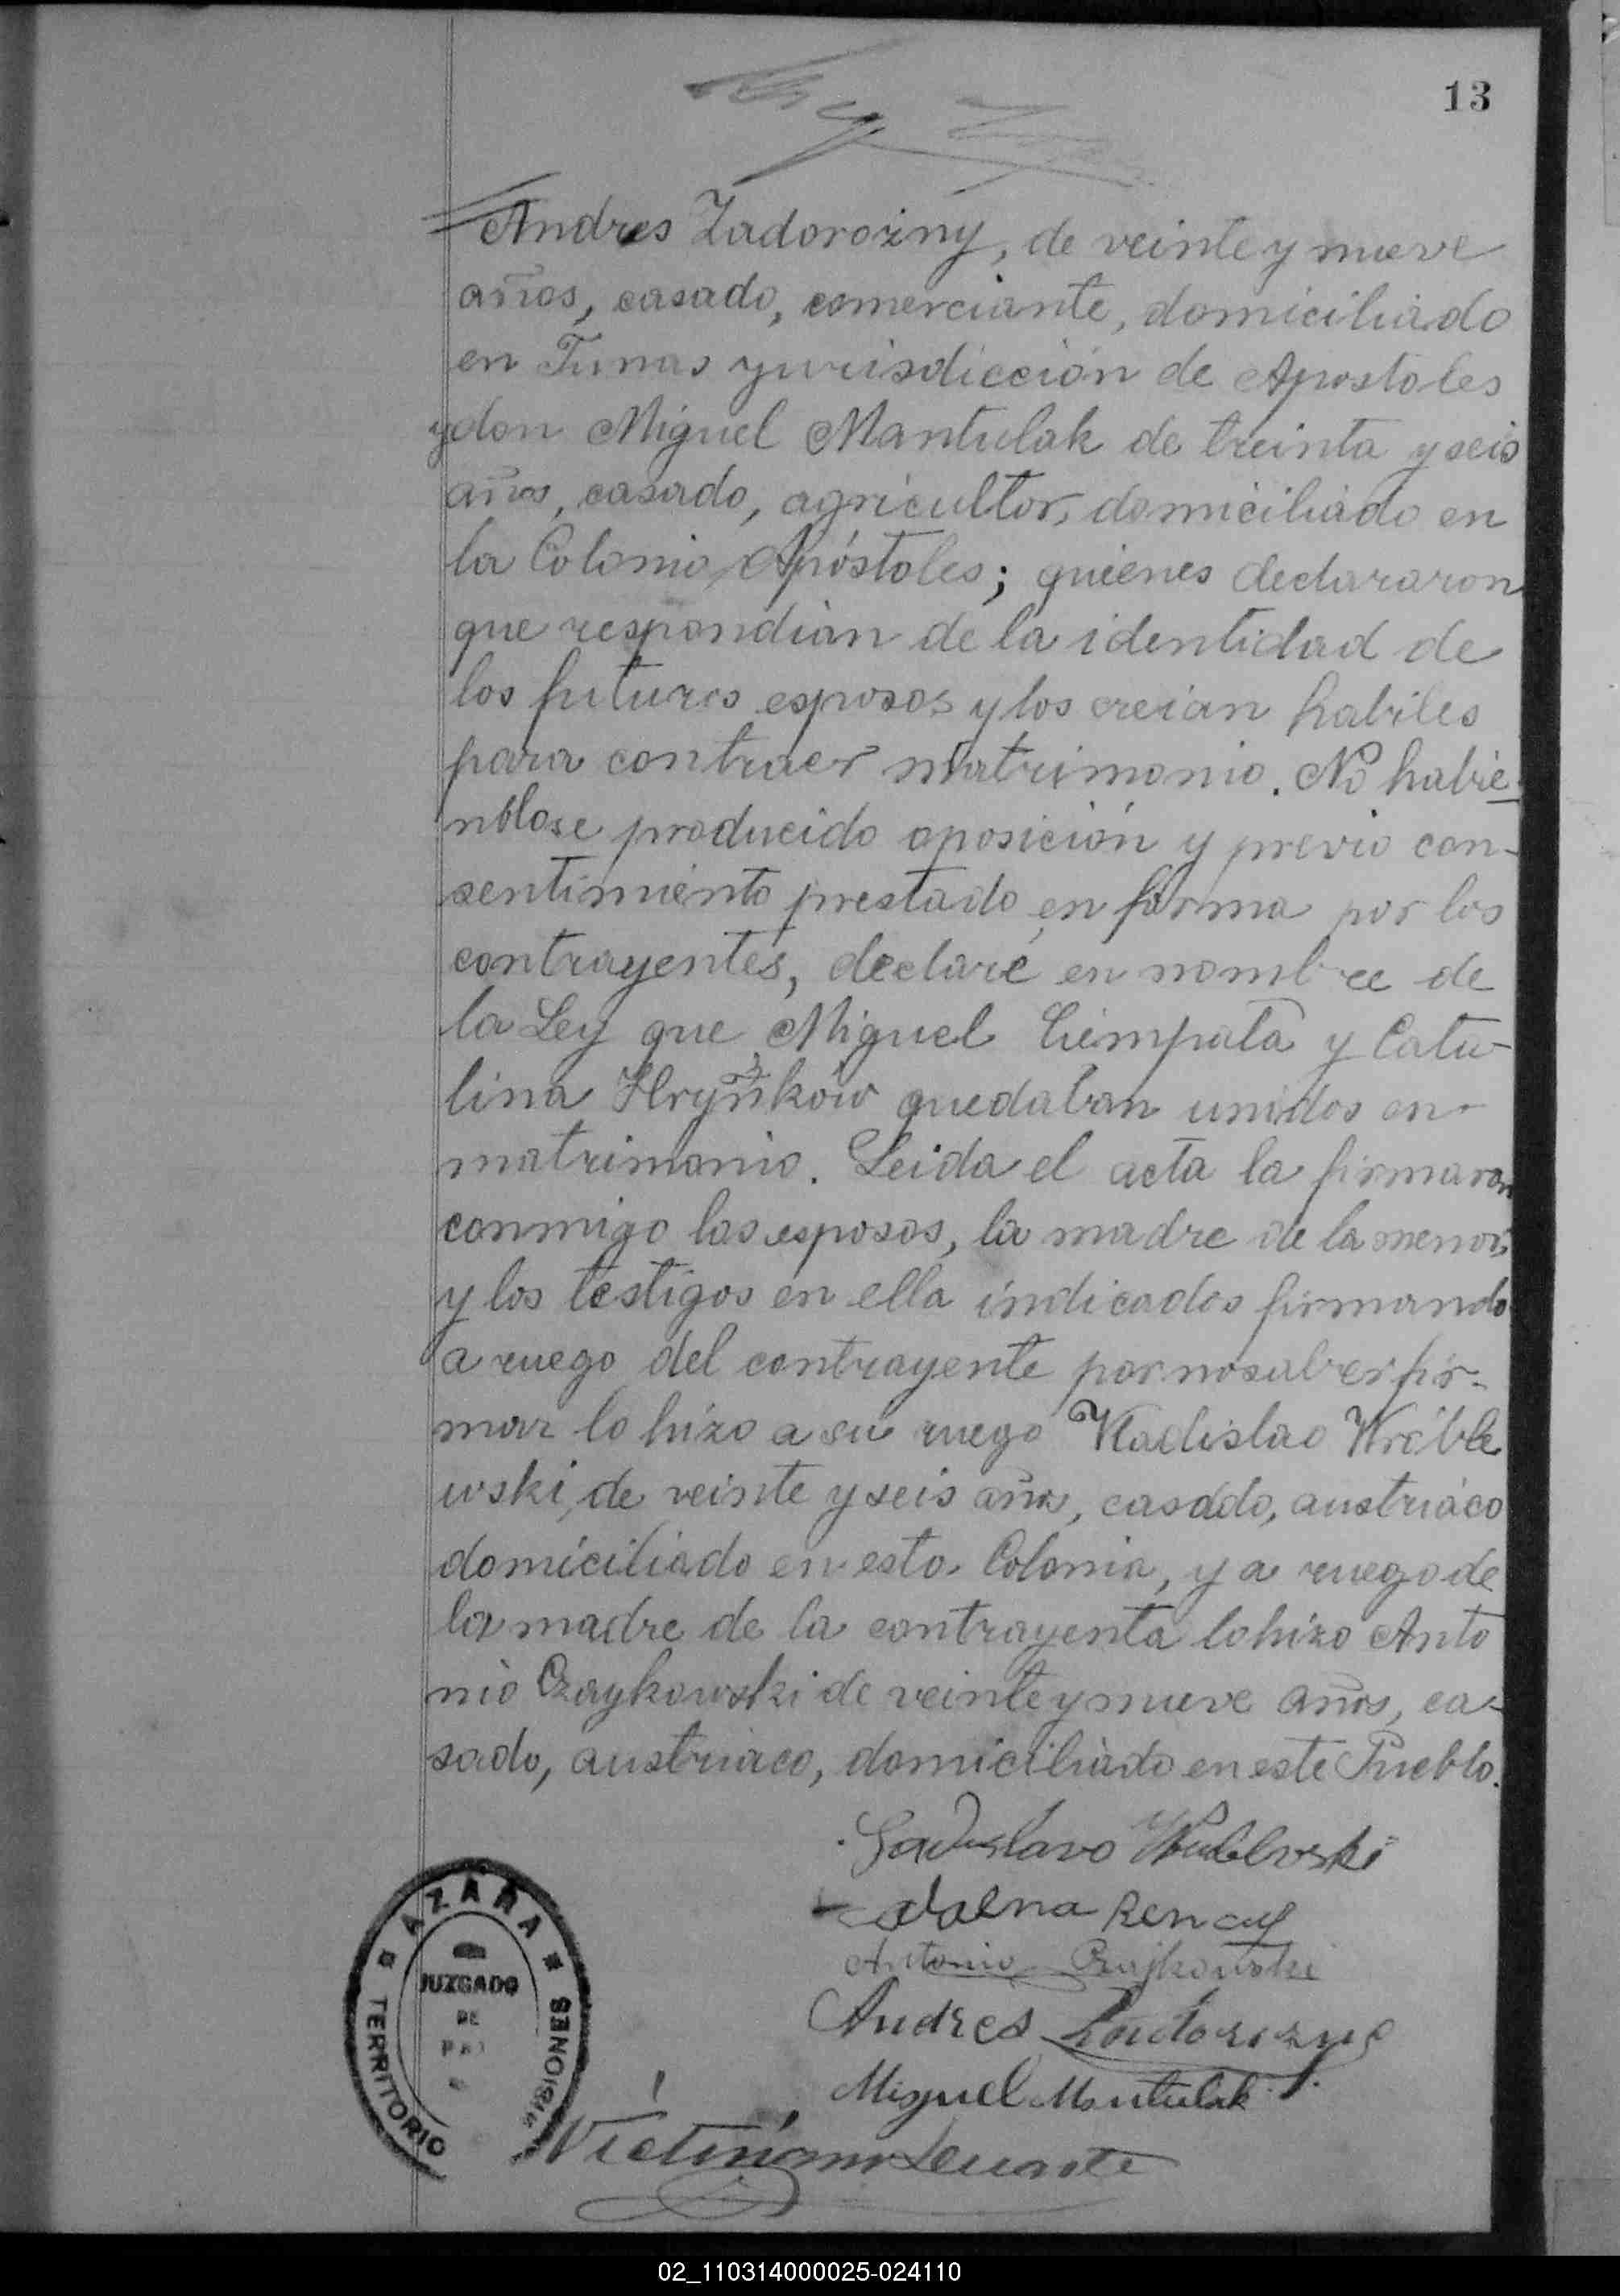 13
Andres Zadorozny, de veinte y nueve
años, casado, comerciante, domiciliado
en Tunas yurisdicción de Apostoles
y don Miguel Mantulak de treinta y seis
años, casado, agricultor, domiciliado en
la Colonia Apóstoles; quienes declararon
que respondian de la identidad de
los futuros esposos y los creian habiles
para contraer matrimonio. No habie-
ndose producido oposición y previo con-
sentimiento prestado en forma por los
contrayentes, declaré en nombre de
la Ley que Miguel Ciempata y Cata-
lina Hryńków quedaban unidos en
matrimonio. Leida el acta la firmaron
conmigo los esposos, la madre de la menor,
y los testigos en ella indicados firmando
a ruego del contrayente por no saber fir-
mar lo hizo a su ruego Wladislao Wróble
wski, de veinte y seis años, casado, austriaco
domiciliado en esta Colonia, y a ruego de
la madre de la contrayenta lo hizo Anto
nio Czaykowski de veinte y nueve años, ca-
sado, austriaco, domiciliado en este Pueblo.
Antonio Czajkowski
Andres
Miguel Mantulak
AZARA
JUZGADO
DE
PAZ
TERRITORIO MISIONES
02_110314000025-024110